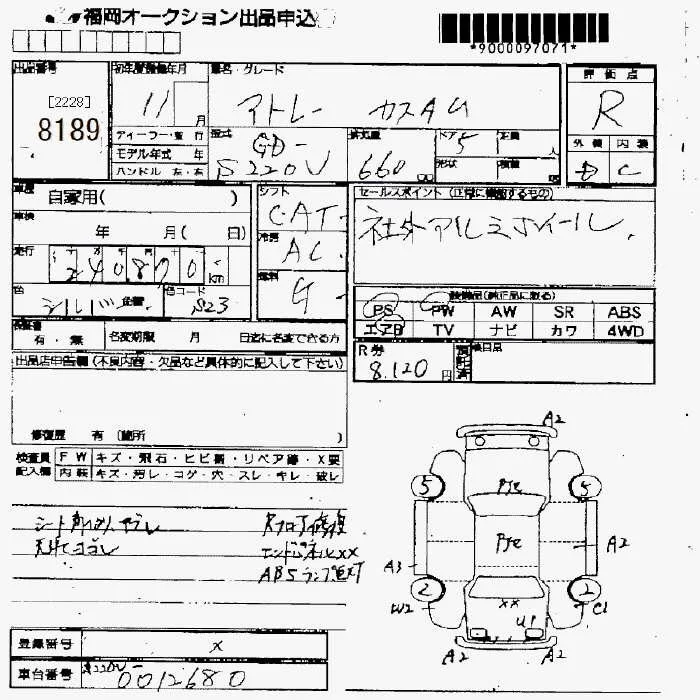 福岡オークション出品申込
*9000097071*
出品番号
[2228]
8189
初年度登録年月
11
月
車名・グレード
アトレー カスタム
評価点
R
外装 内装
D C
ディーラー・並行
モデル年式 年
ハンドル 左・右
型式
GD-
S220V
排気量
660
cc
ドア
5
形状
定員
人
積載
車歴
自家用( )
車検
年 月( 日)
走行
km
色
シルバー
色替
色コード
S23
シフト
CAT
冷房
AC
燃料
G
セールスポイント (正常に機能するもの)
社外アルミホイール
装備品(純正品に限る)
PS PW AW SR ABS
エアB TV ナビ カワ 4WD
保証書
有・無
名変期限 月 日迄に名変できる方
R券
8.120
円
預託済
後日品
出品店申告欄(不良内容・欠品など具体的に記入して下さい)
修復歴 有 (箇所 )
検査員
記入欄
FW キズ・飛石・ヒビ割・リペア跡・X要
内装 キズ・汚レ・コゲ・穴・スレ・キレ・破レ
天井ヨゴレ
Rフロア修復
エンドパネルXX
ABSランプ点灯
A2
5 5
A3
A2
2 2
W2
C1
XX
U1
A2 A2
登録番号
x
車台番号
S220V-
0012680